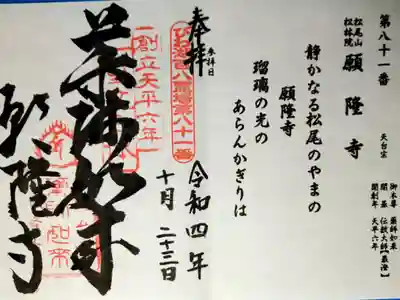 第八十一番
松尾山
松林院
願隆寺
天台宗
御本尊 薬師如来
開基 伝教大師【最澄】
開創年 天平六年
静かなる松尾のやまの
願隆寺
瑠璃の光の
あらんかぎりは
奉拝
参拝日
令和四年
十月二十三日
びわ湖百八霊場第八十一番
創立天平六年
薬師如来
願隆寺